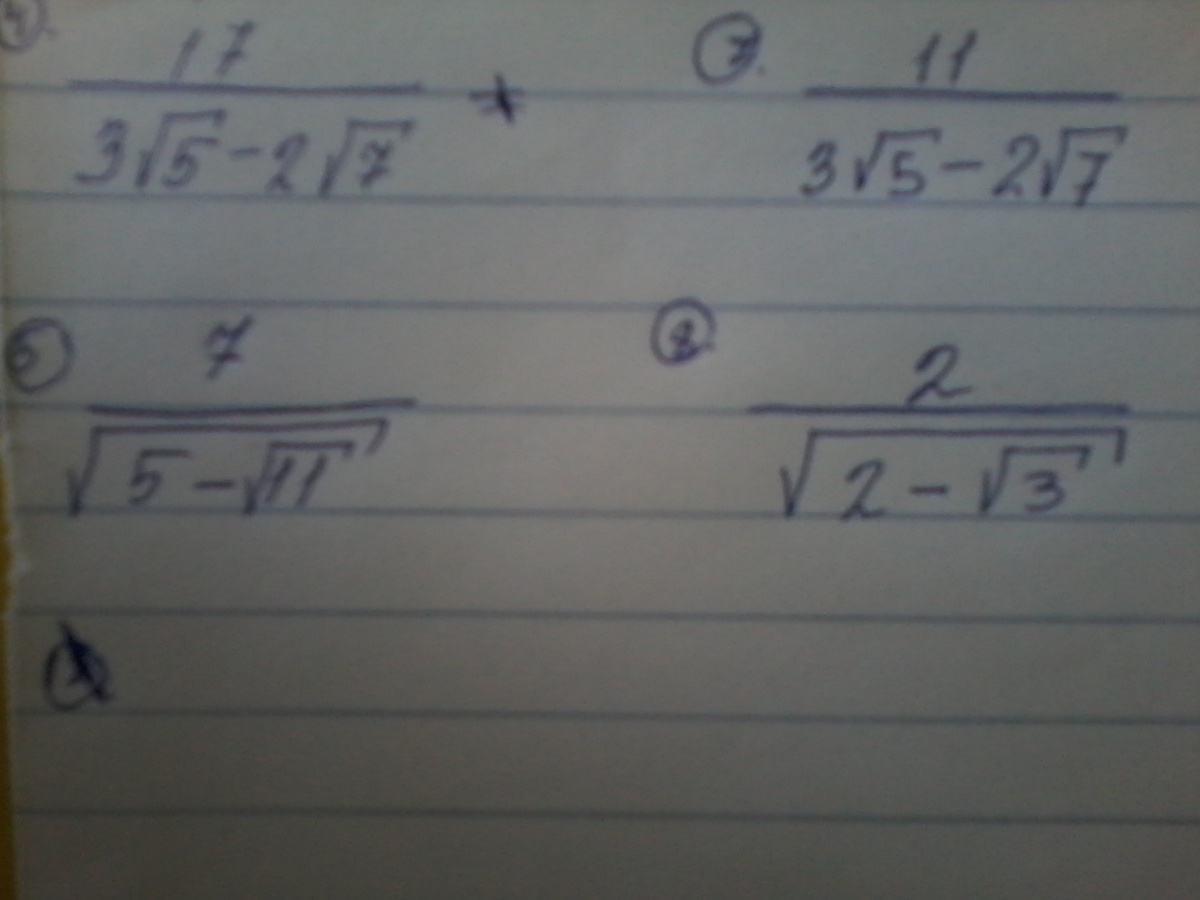 4. 17/(3√5-2√7) 7. 11/(3√5-2√7)
5 7/√(5-√11) 8. 2/√(2-√3)